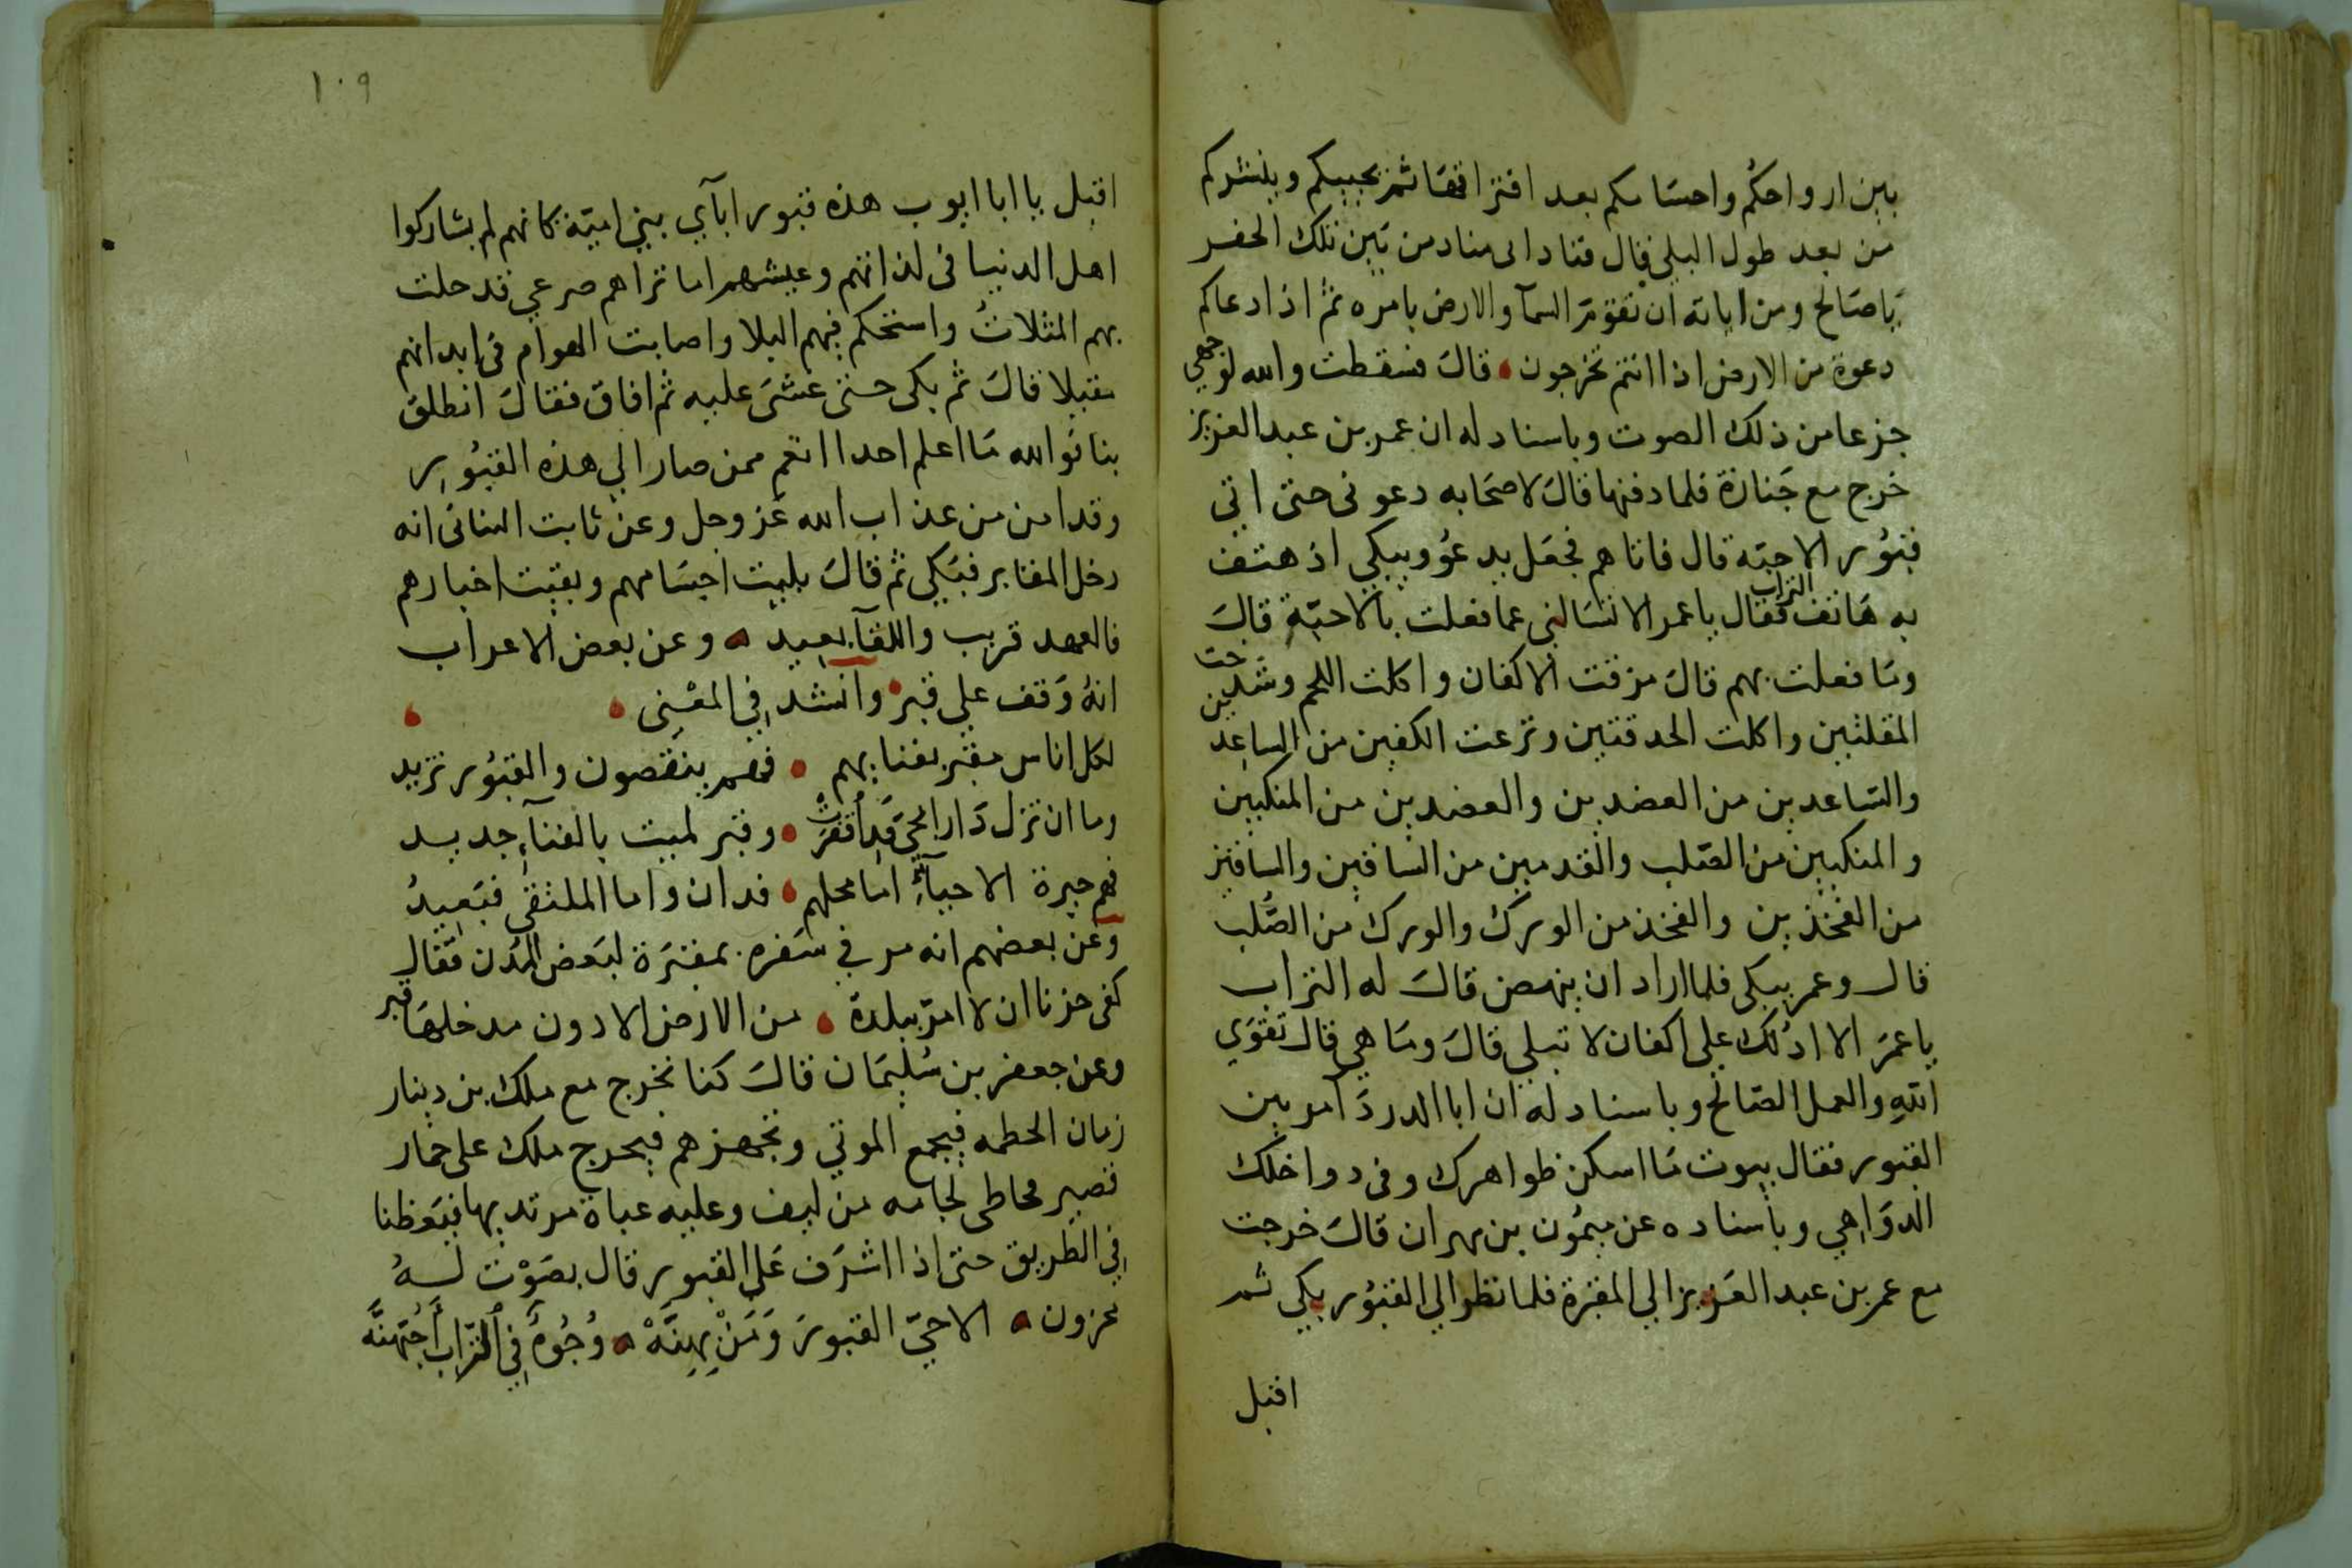 بين ارواحكم واجسامكم بعد افتراقها ثم يحييكم وينشركم
من بعد طول البلى قال فنادانى مناد من بين تلك الحفر
يا صالح ومن اياته ان تقوم السمآ والارض بامره ثم اذا دعاكم
دعوة من الارض اذا انتم تخرجون قال فسقطت والله لوجهي
جزعا من ذلك الصوت وباسناد له ان عمر بن عبد العزيز
خرج مع جنازة فلما دفنها قال لاصحابه دعونى حتى اتي
قبور الاحبة قال فاتاهم فجعل يدعو ويبكي اذ هتف
به هاتف التراب فقال يا عمر الا تسالني عما فعلت بالاحبة قال
وما فعلت بهم قال مزقت الاكفان واكلت اللحم وشدخت
المقلتين واكلت الحدقتين ونزعت الكفين من الساعدين
والساعدين من العضدين والعضدين من المنكبين
والمنكبين من الصلب والقدمين من الساقين والساقين
من الفخذين والفخذ من الورك والورك من الصلب
قال وعمر يبكى فلما اراد ان ينهض قال له التراب
يا عمر الا ادلك على اكفان لا تبلى قال وما هي قال تقوي
الله والعمل الصالح وباسناد له ان ابا الدردآ مر بين
القبور فقال بيوت ما اسكن ظواهرك وفى دواخلك
الدواهي وباسناده عن ميمون بن مهران قال خرجت
مع عمر بن عبد العزيز الي المقبرة فلما نظر الي القبور بكي ثم
اقبل
١٠٩
اقبل يا ابا ايوب هذه قبور ابآي بني امية كانهم لم يشاركوا
اهل الدنيا فى لذاتهم وعيشهم اما تراهم صرعي قد حلت
بهم المثلات واستحكم فيهم البلا واصابت الهوام فى ابدانهم
مقيلا قال ثم بكى حتى غشى عليه ثم افاق فقال انطلق
بنا فوالله ما اعلم احدا انعم ممن صار الي هذه القبور
وقد امن من عذاب الله عز وجل وعن ثابت البنانى انه
دخل المقابر فبكي ثم قال بليت اجسامهم وبقيت اخبارهم
فالعهد قريب واللقآ بعيد وعن بعض الاعراب
انه وقف علي قبر وانشد في المعني
لكل اناس مقبر بفنايهم فهم ينقصون والقبور تزيد
وما ان تزل دار الحي قد اقفرت وقبر لميت بالفنآء جديد
هم جيرة الاحيآء اما محلهم فدان واما الملتقى فبعيد
وعن بعضهم انه مر في سفره بمقبرة لبعض المدن فقال
كفى حزنا ان لا امر ببلدة من الارض الا دون مدخلها قبر
وعن جعفر بن سليمان قال كنا نخرج مع ملك بن دينار
زمان الحطمه فيجمع الموتي ونجهزهم فيخرج ملك على حمار
قصير لجامه من ليف وعليه عباة مرتد بها فيعظنا
في الطريق حتى اذا اشرف على القبور قال بصوت له
محزون الا حيّ القبور وَمَنْ بِهِنَّهْ وُجُوهٌ في التُّراب أُحِبُّهُنَّه